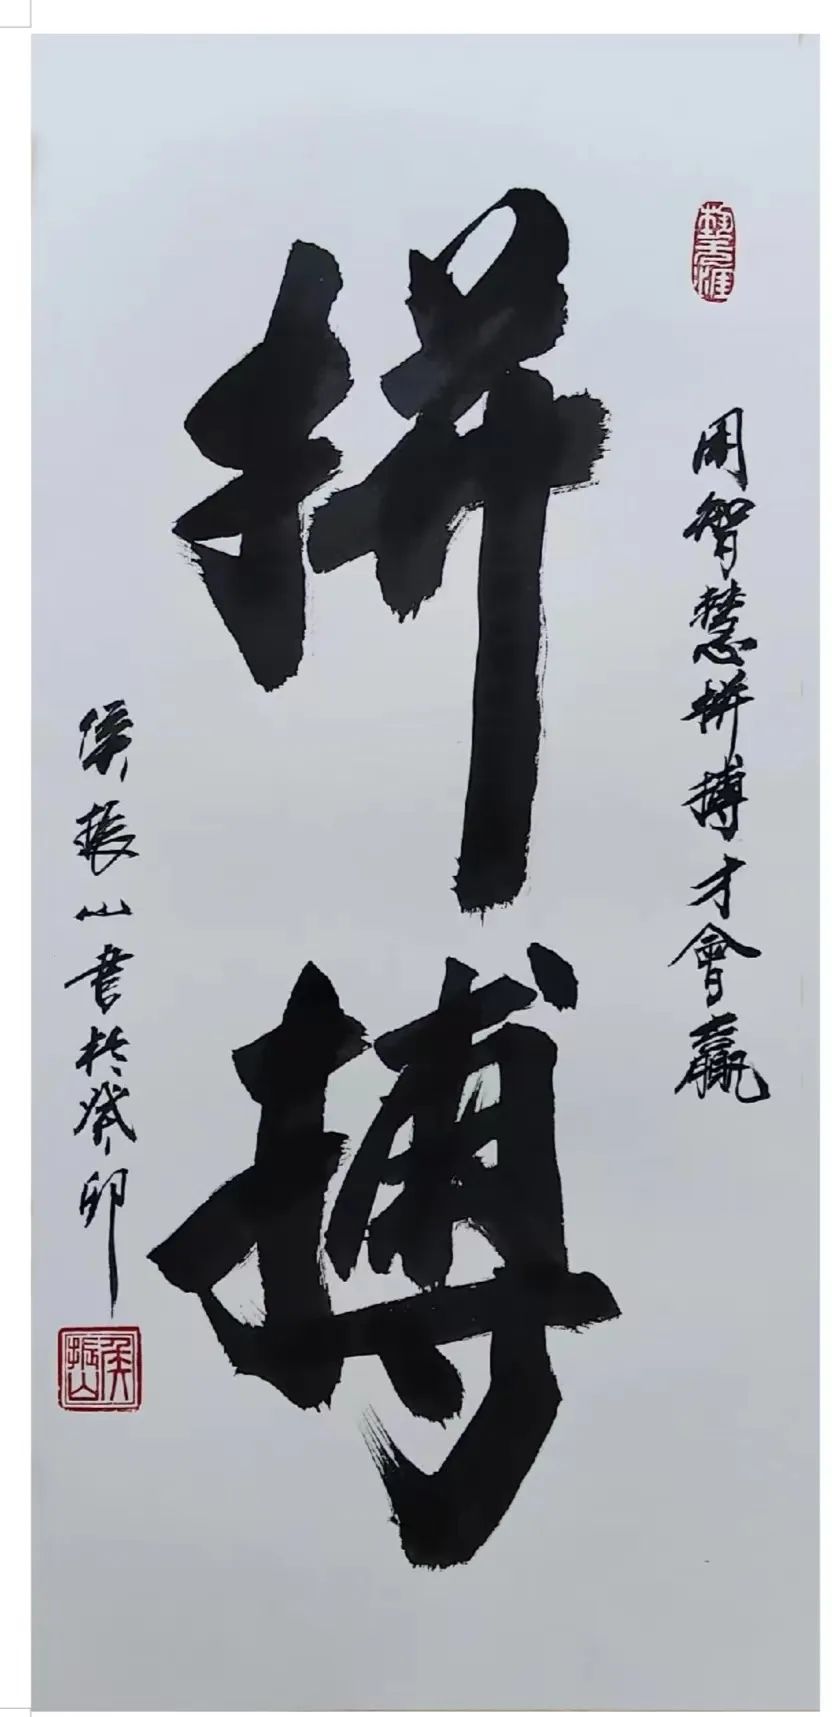 用智慧拼搏才會贏
拼搏
侯振山書於癸卯
侯振山